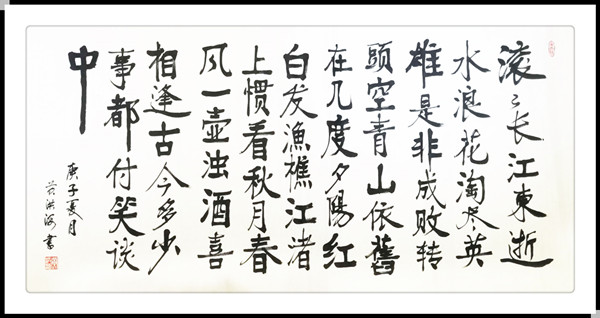 滚〻长江東逝
水浪花淘尽英
雄是非成败转
頭空青山依舊
在几度夕陽红
白发漁樵江渚
上惯看秋月春
风一壶浊酒喜
相逢古今多少
事都付笑谈
中
庚子夏月
洪海書